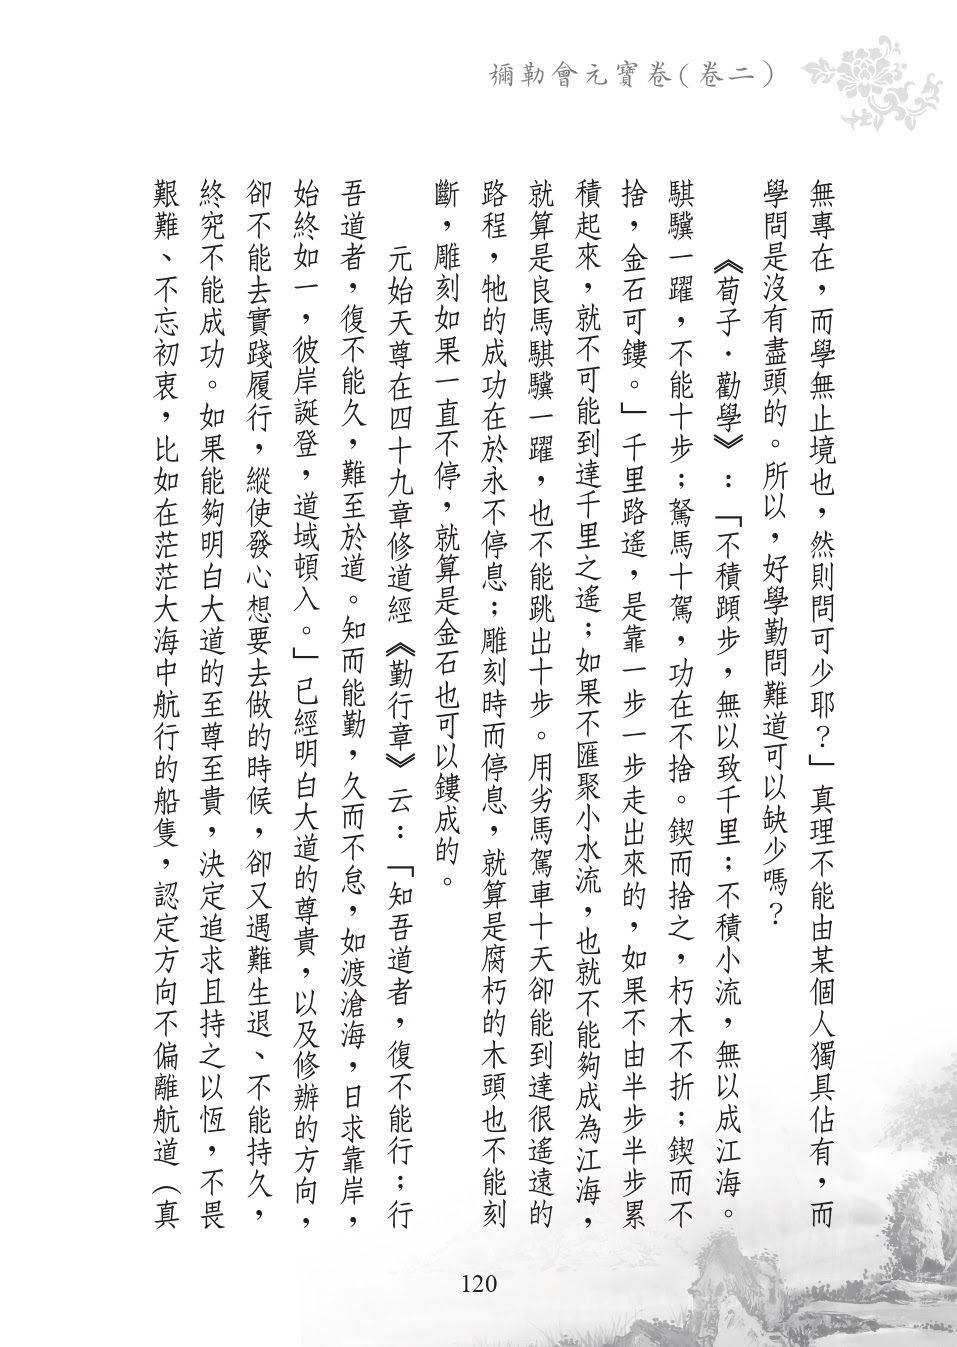 彌勒會元寶卷(卷二)
無專在，而學無止境也，然則問可少耶？」真理不能由某個人獨具佔有，而
學問是沒有盡頭的。所以，好學勤問難道可以缺少嗎？
《荀子．勸學》：「不積蹞步，無以致千里；不積小流，無以成江海。
騏驥一躍，不能十步；駑馬十駕，功在不捨。鍥而捨之，朽木不折；鍥而不
捨，金石可鏤。」千里路遙，是靠一步一步走出來的，如果不由半步半步累
積起來，就不可能到達千里之遙；如果不匯聚小水流，也就不能夠成為江海，
就算是良馬騏驥一躍，也不能跳出十步。用劣馬駕車十天卻能到達很遙遠的
路程，牠的成功在於永不停息；雕刻時而停息，就算是腐朽的木頭也不能刻
斷，雕刻如果一直不停，就算是金石也可以鏤成的。
元始天尊在四十九章修道經《勤行章》云：「知吾道者，復不能行；行
吾道者，復不能久，難至於道。知而能勤，久而不怠，如渡滄海，日求靠岸，
始終如一，彼岸誕登，道域頓入。」已經明白大道的尊貴，以及修辦的方向，
卻不能去實踐履行，縱使發心想要去做的時候，卻又遇難生退、不能持久，
終究不能成功。如果能夠明白大道的至尊至貴，決定追求且持之以恆，不畏
艱難、不忘初衷，比如在茫茫大海中航行的船隻，認定方向不偏離航道（真
120